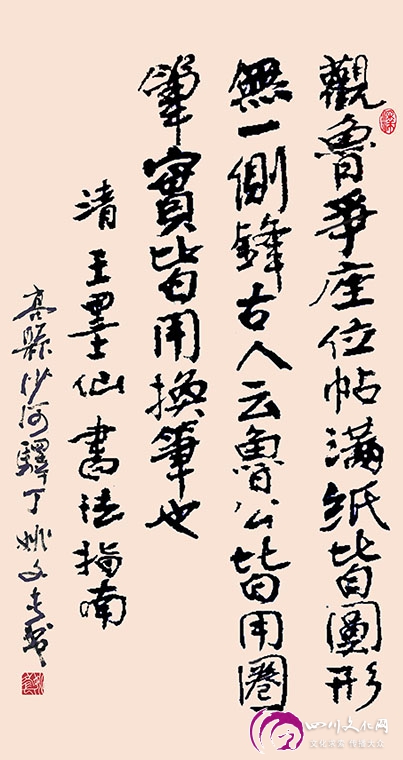 觀魯爭座位帖滿紙皆圓形
無一側鋒古人云魯公皆用圈
筆實皆用換筆也
清王墨仙書法指南
高縣沙河驛丁姚文
四川文化网